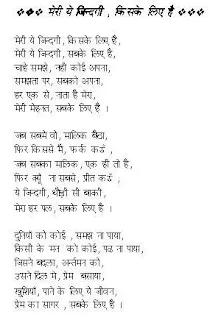 ❖❖❖ मेरी ये जिन्दगी , किसके लिए है ❖❖❖
मेरी ये जिन्दगी, किसके लिए है,
मेरी ये जिन्दगी, सबके लिए है,
चाहे समझे, नही कोई अपना,
समझता पर, सबको अपना,
हर एक से, नाता है मेरा,
मेरी मेहनत, सबके लिए है ।
जब सबमे वो, मालिक बैठा,
फिर किससे मैं, फर्क करूं ,
जब सबका मालिक, एक ही तो है,
फिर क्यूं ना सबसे, प्रीत करूं ,
ये जिन्दगी, थौड़ी सी बाकी,
मेरा हर पल, सबके लिए है ।
दुनियाँ को कोई , समझ ना पाया,
किसी के मन को कोई, पढ ना पाया,
जिसने बदला, अर्न्तमन को,
उसने दिल मे, प्रेम बसाया,
खुशियाँ, पाने के लिए ये जीवन,
प्रेम का सागर , सबके लिए है ।